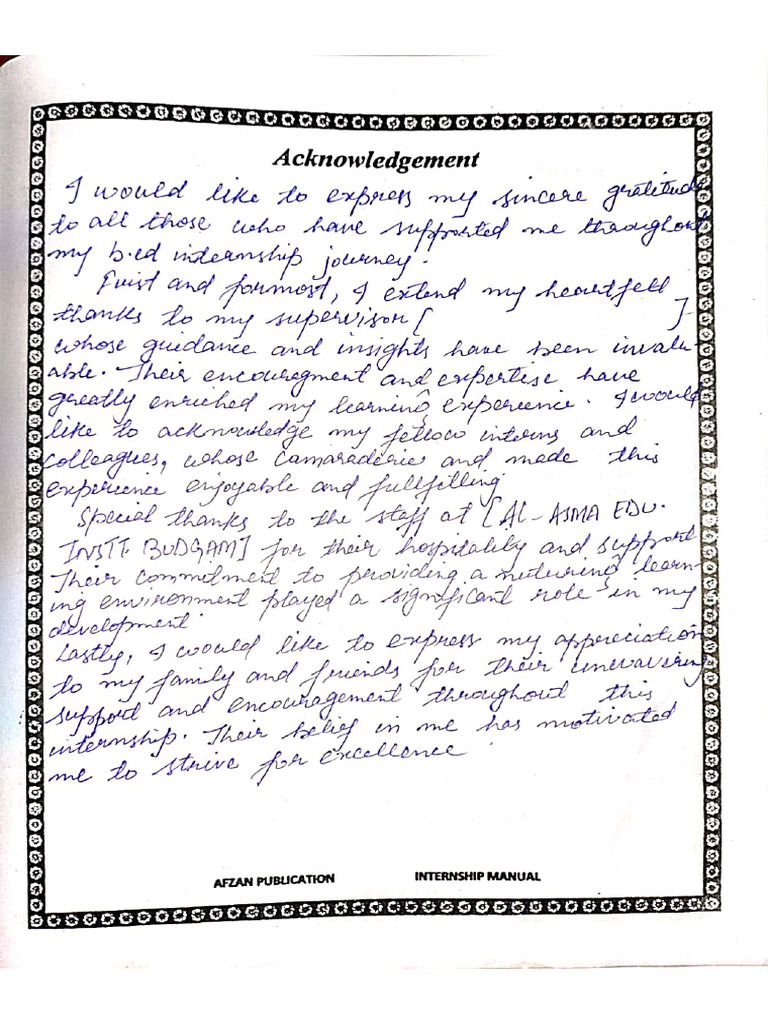 Acknowledgement
I would like to express my sincere gratitud
to all those who have supported me throughout
my b.ed internship journey.
First and formost, I extend my heartfelt
thanks to my supervisor [ ]
whose guidance and insights have been invalu-
able. Their encouregment and expertise have
greatly enriched my learning experience. I would
like to acknowledge my fellow interns and
colleagues, whose camaraderie and made this
experience enjoyable and fullfilling
Special thanks to the staff at [AL-ASMA EDU.
INSTT. BUDGAM] for their hospitality and support
Their commitment to providing a nuturing learn-
ing environment played a significant role in my
development.
Lastly, I would like to express my appreciation
to my family and friends for their unwavering
support and encouragement throughout this
internship. Their belief in me has motivated
me to strive for excellence.
AFZAN PUBLICATION INTERNSHIP MANUAL